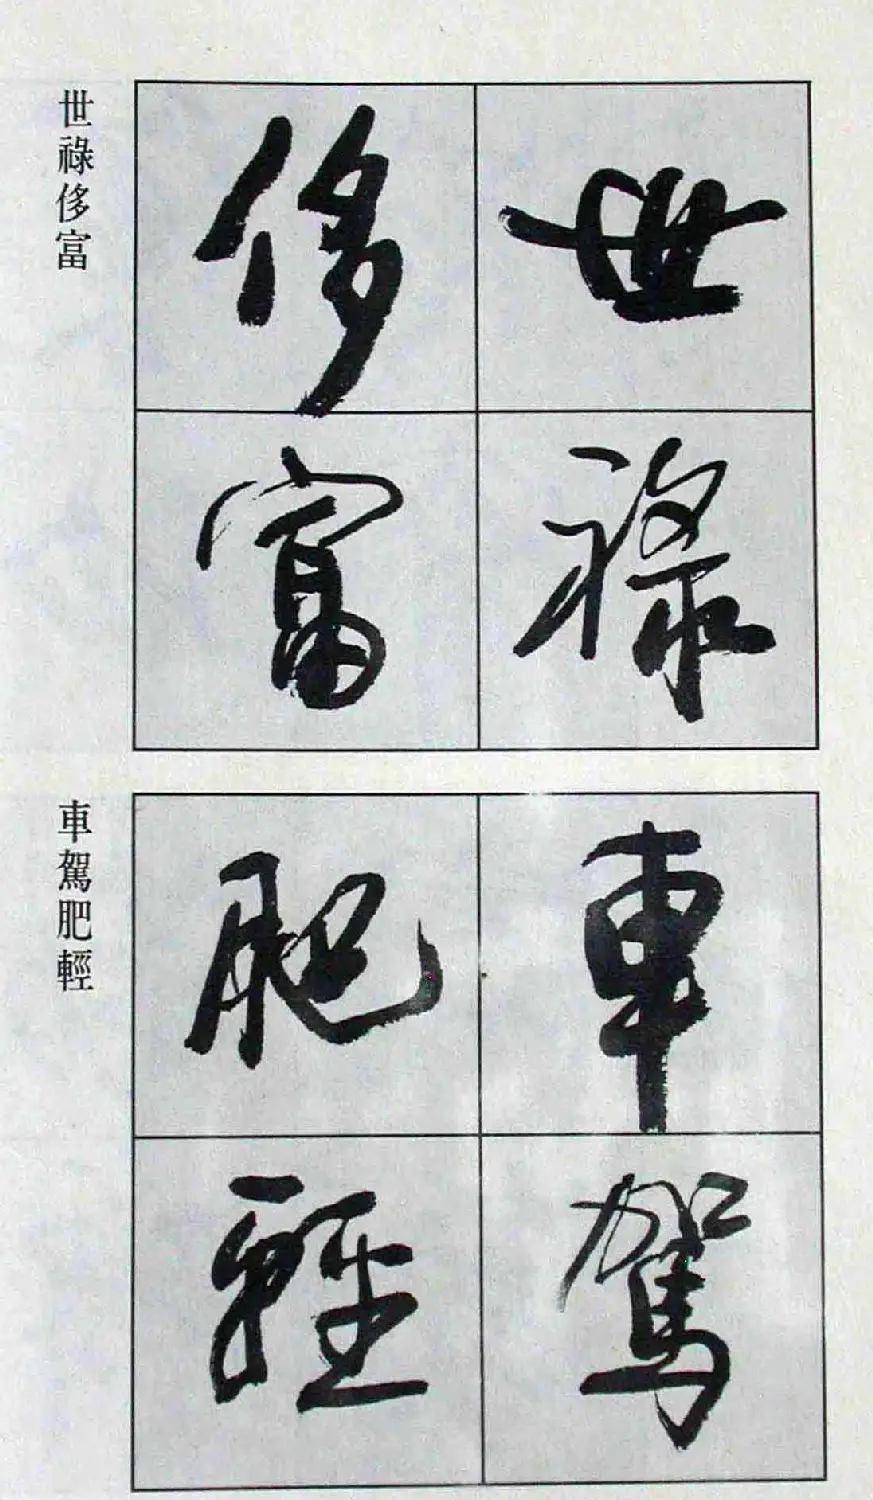 世祿
侈富
世祿侈富
車駕
肥輕
車駕肥輕